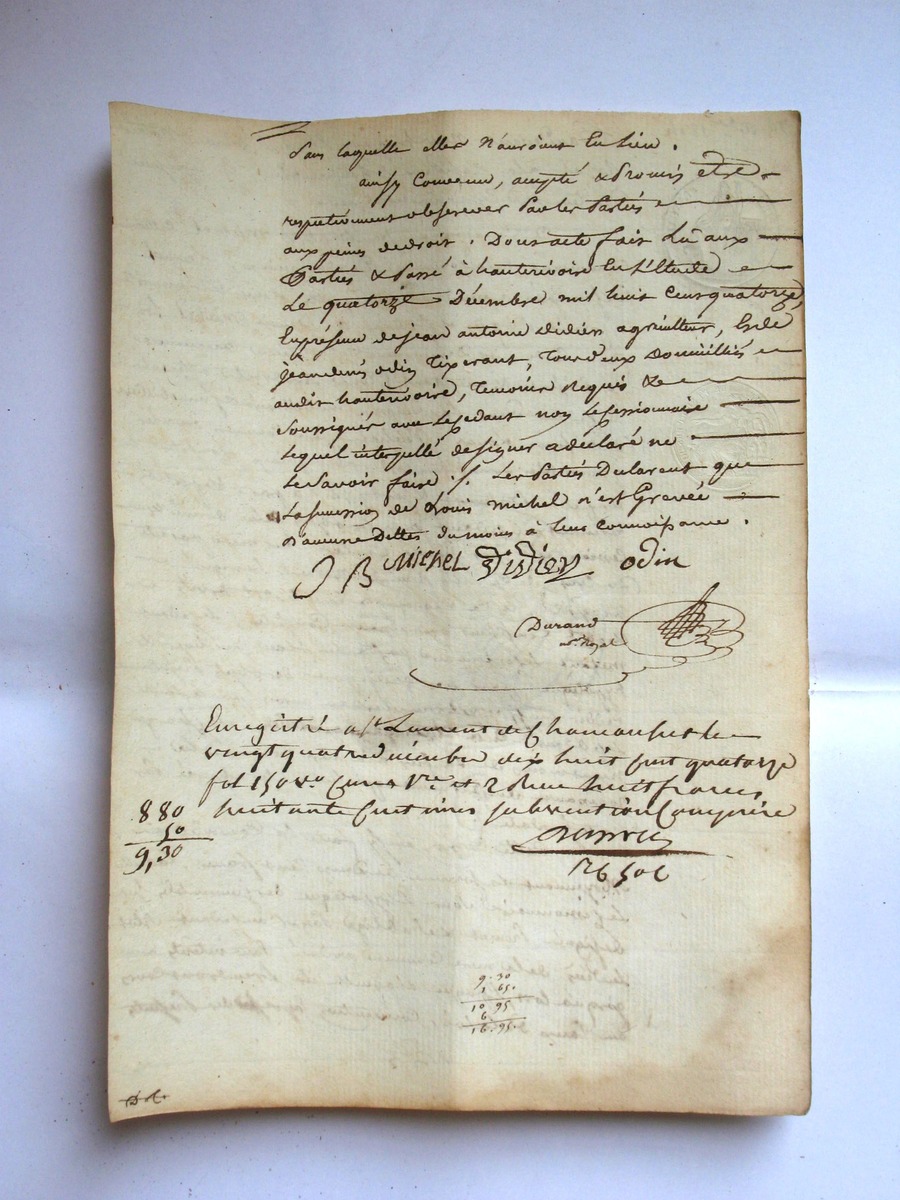 Sans laquelle elles n'auroient eu lieu.
ainsy convenu, accepté & promis etre
respectivement observer par les Parties
aux peines de droit. Dont acte fait Lu aux
Parties & passé à hauterivoire En l'Etude
Le quatorze Décembre mil huit cent quatorze,
En présence de jean antoine didier agriculteur, Et de
jean denis odin Tixerant, Tous deux Domicilliés
audit hauterivoire, Temoins Requis &
Soussignés avec Le Cedant non Le Cessionnaire
Lequel interpellé de signer a déclaré ne
Le Savoir faire ./. Les Parties Déclarent que
La succession de Louis michel n'est Gravée
D'aucune Dettes du moins à leur connoissance.
J B Michel Didier odin
Durand
nre Royal
Enregistré a St Laurent de Chamousset le
vingt quatre décembre dix huit cent quatorze
fol 150 vo Cases 1re et 2 Reçu huit francs
huitante centimes subvention Comprise
8 80
50
9,30
9. 30
1 65.
10 95
6.
16. 95.